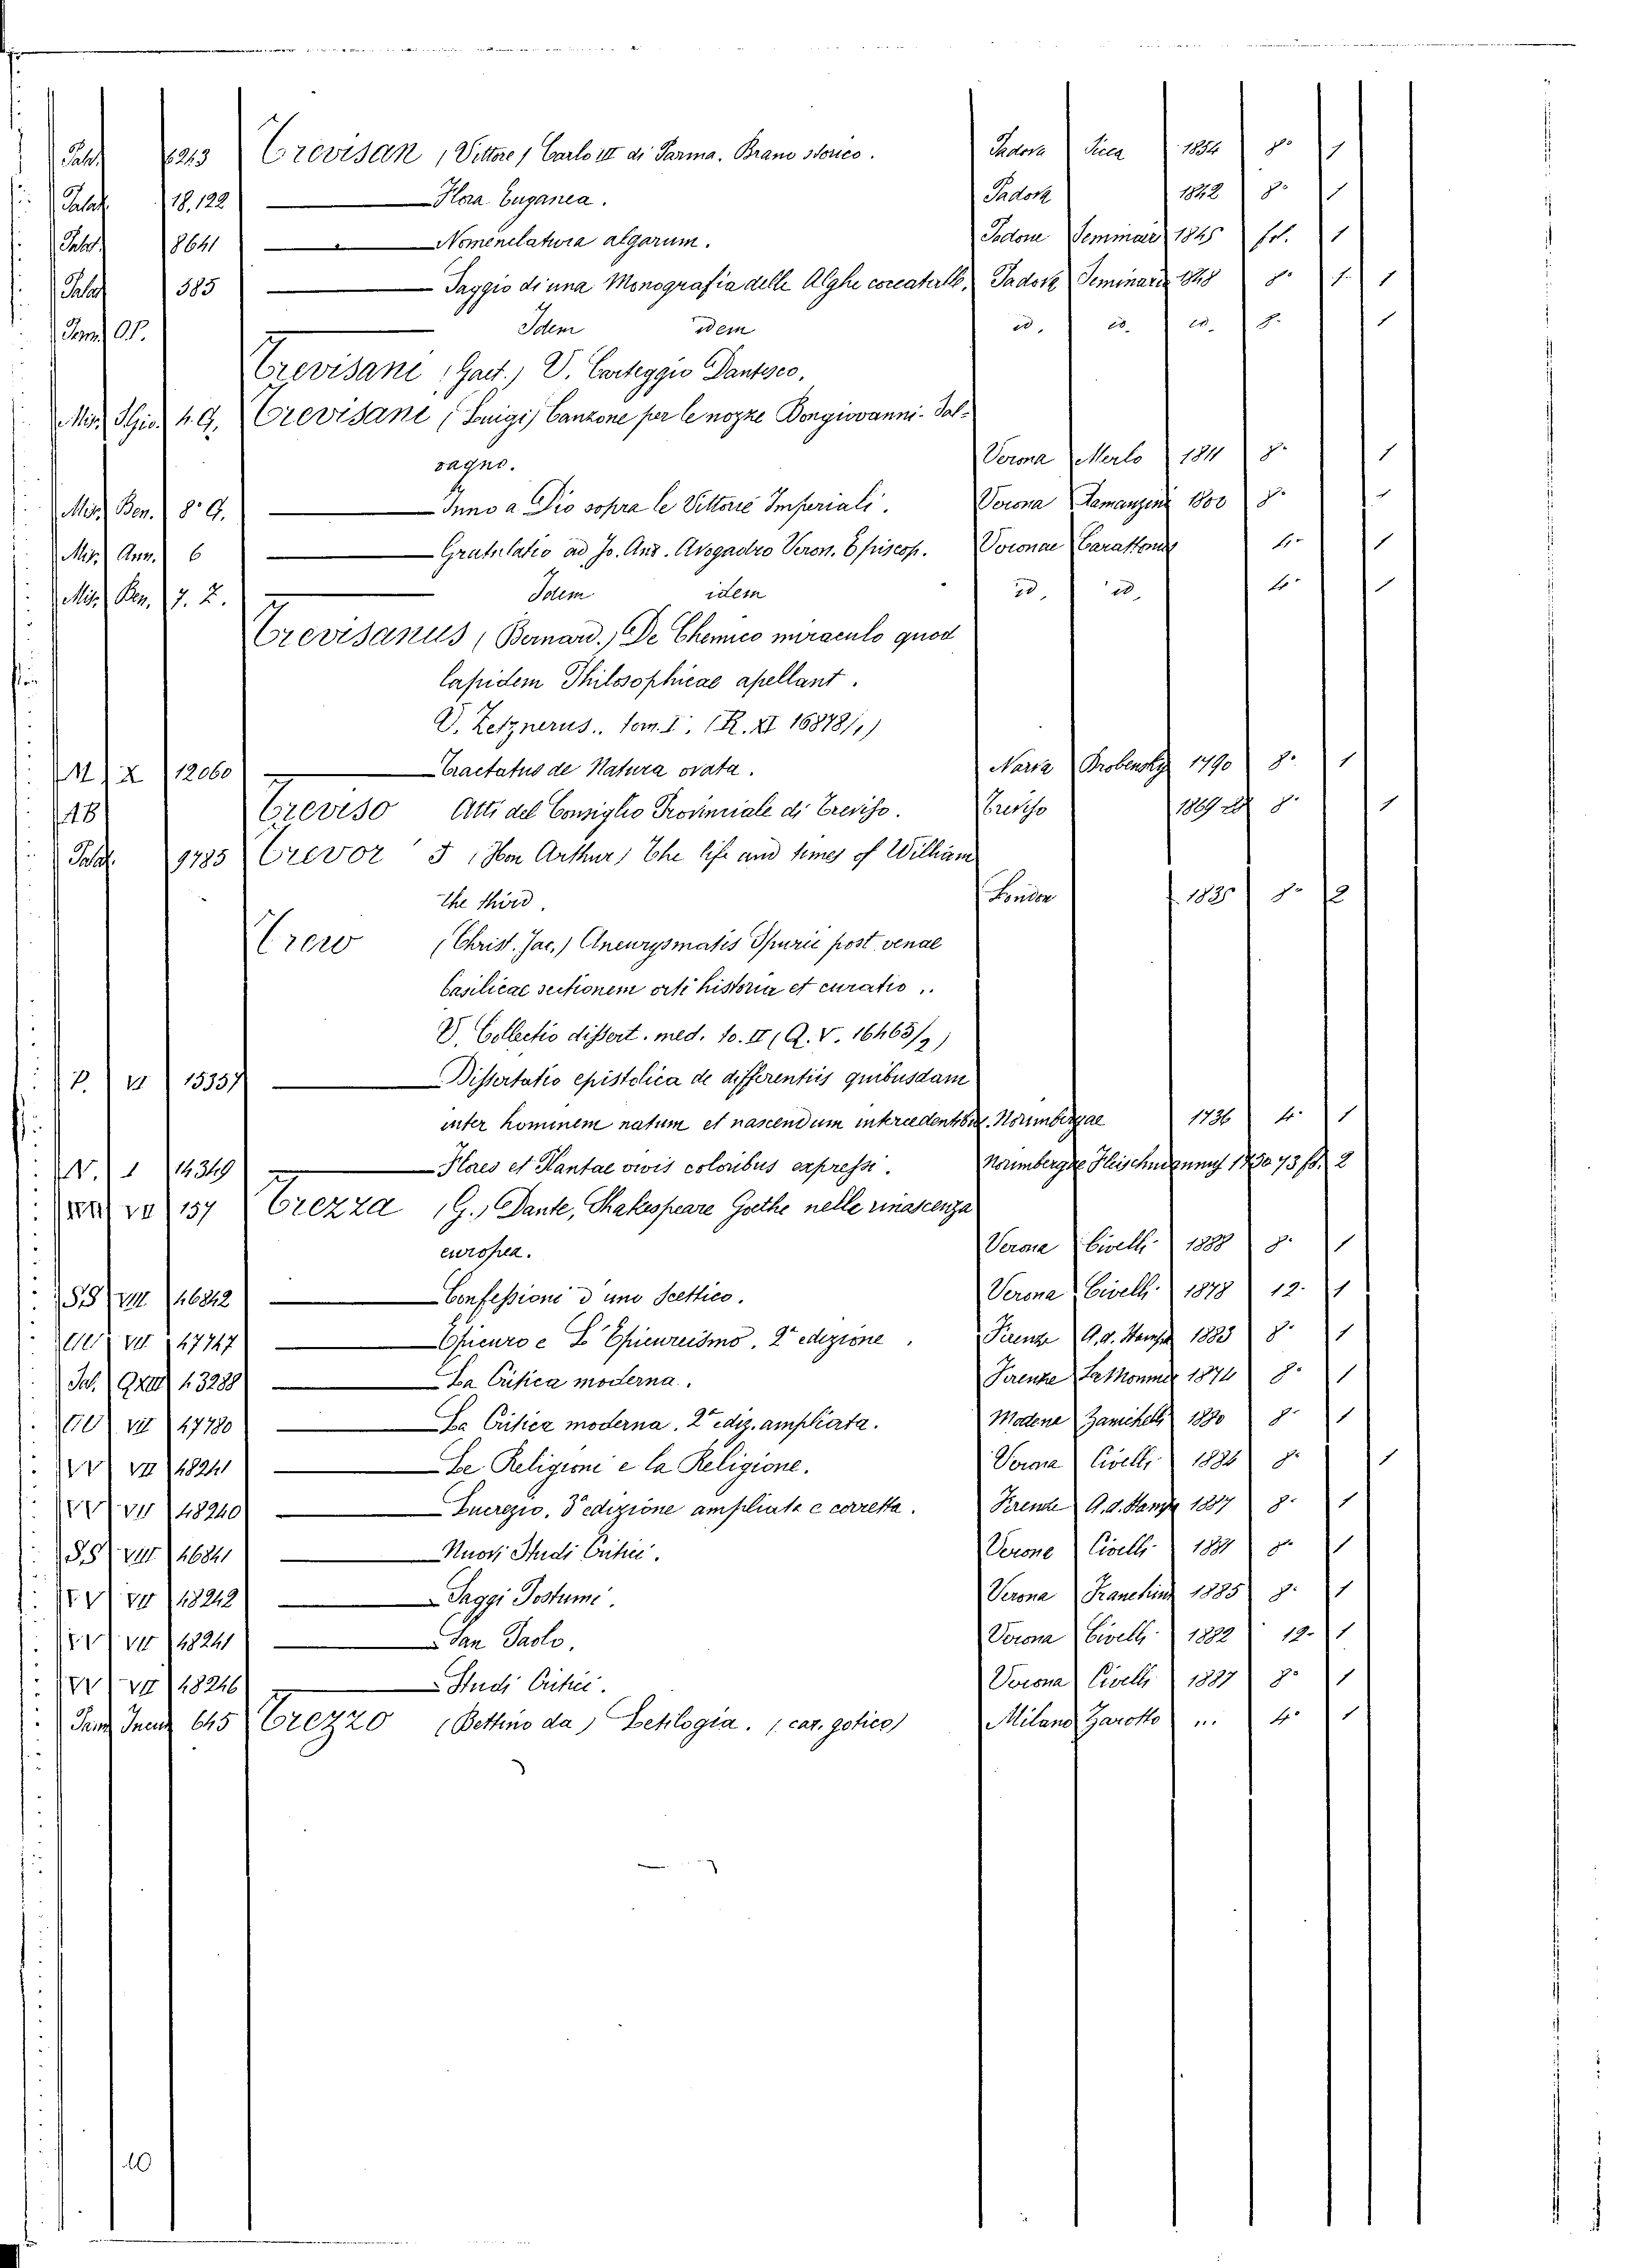 Palat. 6213 Trevisan (Vittore) Carlo III di Parma. Brano storico. Padova Sicca 1854 8° 1
Palat. 18,122 — Flora Euganea. Padova 1842 8° 1
Palat. 8641 — Nomenclatura algarum. Padova Seminar 1845 fol. 1
Palat 585 — Saggio di una Monografia delle Alghe coccatalle. Padova Seminario 1848 8° 1
— Idem idem id. id. id. 8. 1
Trevisani (Gaet.) V. Carteggio Dantesco.
4. G. Trevisani (Luigi) Canzone per le nozze Bongiovanni-Sal-
vagno. Verona Merlo 1811 8° 1
Mis. Ben. 8° G. — Inno a Dio sopra le Vittorie Imperiali. Verona Ramanzini 1800 8° 1
Mis. Ann. 6 — Gratulatio ad Jo. And. Avogadro Veron. Episcop. Veronae Carattoni 4° 1
Mis. Ben. 7. Z. — Idem idem id. id. 4° 1
Trevisanus (Bernard.) De Chemico miraculo quod
lapidem Philosophicae apellant.
V. Zetznerus.. tom. I. (R. XI 16878/1)
M X 12060 — Tractatus de Natura ovata. Narva Brobensky 1790 8. 1
Treviso Atti del Consiglio Provinciale di Treviso. Treviso 8° 1
Palat. 9785 Trevor (Hon Arthur) The life and times of William
the third. London 1835 8° 2
Trew (Christ. Jac.) Aneurysmatis Spurii post venae
basilicae sectionem orti historia et curatio..
V. Collectio dissert. med. to. II (Q. V. 16463/2)
P. VI 15357 — Dissertatio epistolica de differentiis quibusdam
inter hominem natum et nascendum intercedentibus. Norimbergae 1736 4° 1
N. I 14349 — Flores et Plantae vivis coloribus expressi. Norimbergae 2
VII 157 Trezza (G.) Dante, Shakespeare Goethe nelle rinascenza
europea. Verona Civelli 1888 8° 1
SS VIII 46842 — Confessioni d'uno Scettico. Verona Civelli 1878 12. 1
VII 47747 — Epicuro e L'Epicureismo. 2ª edizione. Firenze A.d. Stampa 1885 8° 1
43288 — La Critica moderna. Firenze Le Monnier 1874 8° 1
VII 47780 — La Critica moderna. 2ª ediz. ampliata. Modena Zanichelli 1880 8° 1
VV VII 48241 — Le Religioni e la Religione. Verona Civelli 8° 1
VV VII 48240 — Lucrezio. 3ª edizione ampliata e corretta. Firenze A.d. Stampa 1887 8° 1
SS VIII 46841 — Nuovi Studi Critici. Verona Civelli 1881 8° 1
VV VII 48242 — Saggi Postumi. Verona Franchini 1885 8° 1
VV VII 48241 — San Paolo. Verona Civelli 1882 12. 1
VV VII 48246 — Studi Critici. Verona Civelli 1887 8° 1
645 Trezzo (Bettino da) Letilogia. (car. gotico) Milano Zarotto ... 4° 1
10